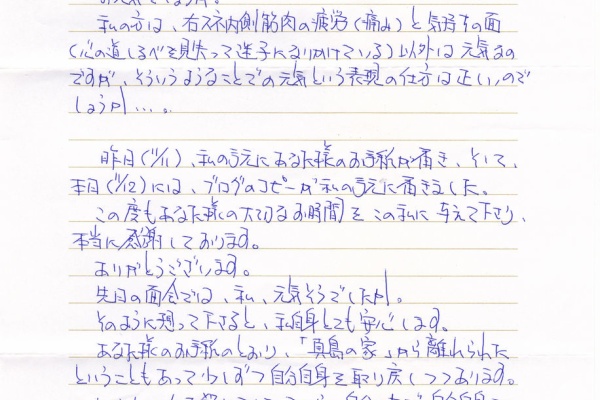 私の方は、右スネ内側筋肉の疲労(痛み)と気持ちの面
(心の道しるべを見失って迷子になりかけている)以外は元気なの
ですが、そういうようなことでの元気という表現の仕方は正しいので
しょうか…。
昨日(/11)、私の元にあなた様のお手紙が届き、そして、
本日(/12)には、ブログのコピーが私の元に届きました。
この度もあなた様の大切なお時間をこの私に与えて下さり、
本当に感謝しております。
ありがとうございます。
先日の面会では、私、元気そうでしたか。
そのように思って下さると、私自身とても安心します。
あなた様のお手紙のとおり、「真島の家」から離れられた
ということもあって少しずつ自分自身を取り戻しつつあります。